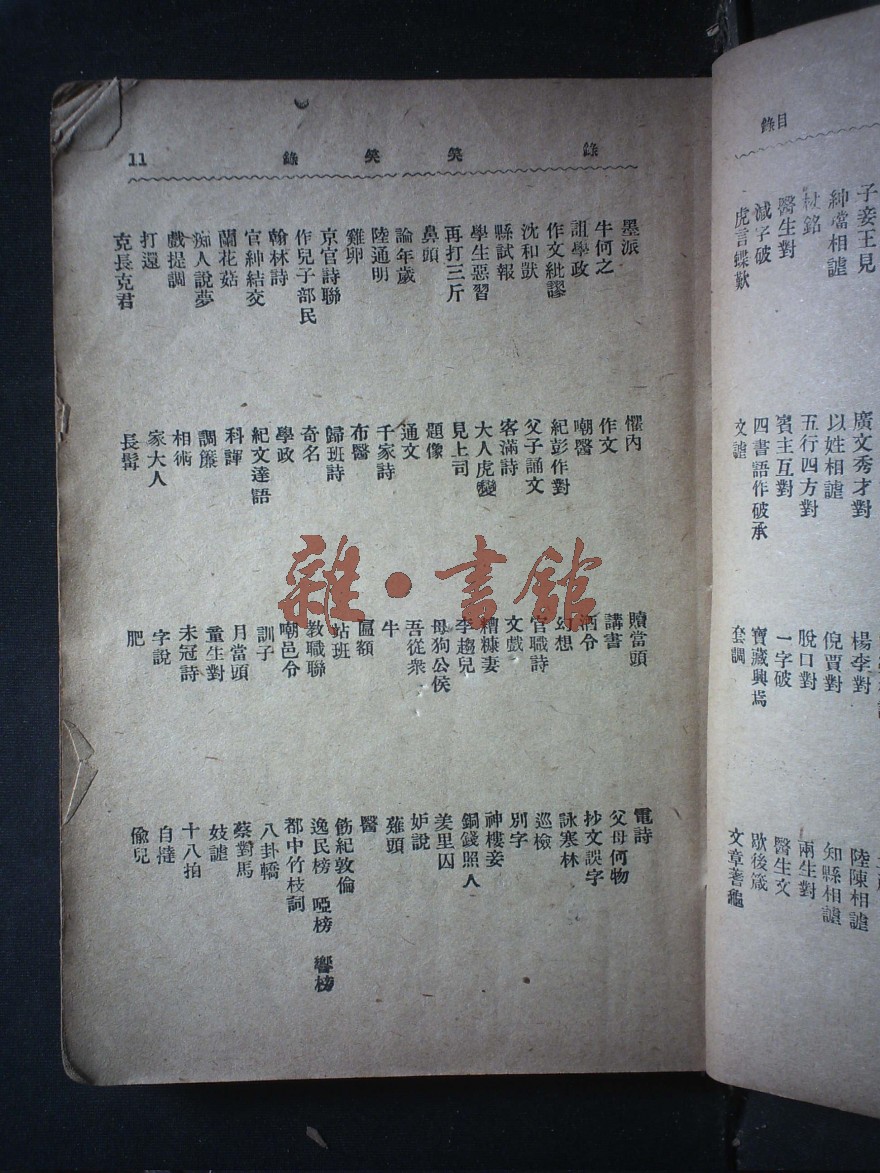 目錄
子妾王見
紳噹相謔
杖銘
醫生對
減字破
虎言蝶歎
廣文秀才對
以姓相謔
五行四方對
賓主互對
四書語作破承
文謔
楊李對
倪賈對
脫口對
一字破
寶藏興焉
套調
陸陳相謔
知縣相謔
兩生對
醫生文
歇後箴
文章蓍龜
錄 笑 笑 錄 11
墨派
牛何之
詛學政
作文紕謬
沈和獃
縣試報
學生惡習
再打三斤
鼻頭
論年歲
陸通明
雞卵
京官詩聯
作兒子部民
翰林詩
官紳結交
蘭花菇
痴人說夢
戲提調
打還
克長克君
懼內
作文
嘲醫
紀彭作對
父子誦文
客滿詩
大人虎變
見上司
題像
通文
千家詩
布醫
歸班詩
奇名
學政
紀文達語
科諢
調簾
相術
家大人
長髯
贖當頭
講書
酒令
幻想
官職詩
文戲
糟糠妻
李趨兒
母狗公侯
吾從衆
牛
匾額
站班
教職聯
嘲邑令
訓子
月當頭
童生對
未冠詩
字說
肥
電詩
父母何物
抄文誤字
詠寒林
巡檢
別字
神樓妾
銅錢照人
羑里囚
妒說
薙頭
醫
飭紀敦倫
逸民榜 啞榜 響榜
都中竹枝詞
八卦轎
蔡對馬
妓謔
十八拍
自撻
偸兒
雜·書館